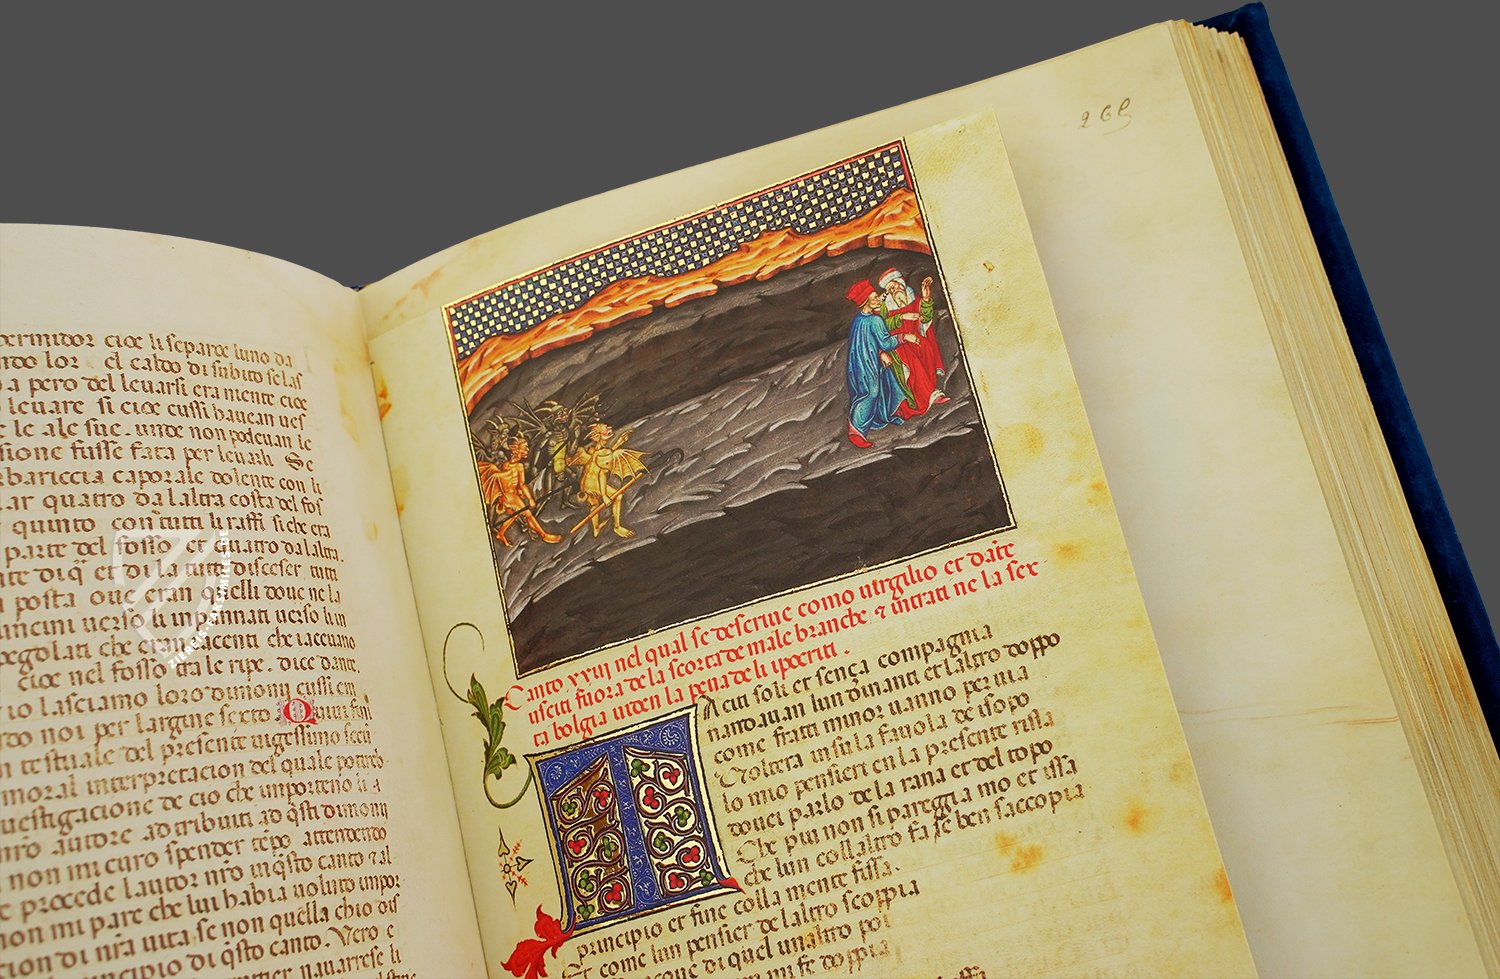 cioe li separoe luno da
rdo lor. el caldo di subito se las
a pero del levarsi era mente cioe
levare si cioe cussi havean ues
e le ale sue. unde non podevan le
sione fusse fata per levarli Se
rbariccia caporale dolente con li
ar quatro da laltra costa del fos
quinto con tutti li raffi si che era
parte del fosso et quatro da laltra.
te di q̄ et di la tutti disceser tutti
posta oue eran quelli doue ne la
uncini uerso li inpaniati uerso li in
pegolati che eran iacenti che iaceuano
cioe nel fosso tra le ripe. dice dante.
io lasciamo loro dimonii cussi em
do noi per largine sexto. Qui
testuale del presente uigessimo secu
moral interpretacion del quale poterob
uestigacione de cio che importeno li a
nro autore adtribuiti ad q̄sti dimonii
non mi curo spender tēpo attendendo
procede lautor nro in q̄sto canto ⁊ al
non mi pare che lui habia uoluto impor
di nr̄a uita, se non quella chio dis
cipio di q̄sto canto. Vero e
nauarrese li
269
Canto xxiii nel qual se descriue como uirgilio et dāte
usciti fuora de la scorta de male branche ⁊ intrati ne la sex
ta bolgia uiden la pena de li ipocriti.
Taciti soli et sença compagnia
nandauan lun dinanti et laltro doppo
come frati minor uanno per uia
Volter a in su la fauola de isopo
lo mio pensier en la presente rissa
doue i parlo de la rana et del topo
Che piu non si pareggia mo et issa
che lun collaltro fa se ben saccopia
principio et fine colla mente fissa.
Et come lun pensier de laltro scoppia
nacque di quel unaltro poi
mi fe doppia